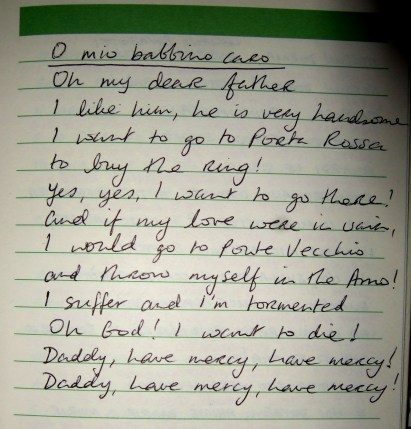 O mio babbino caro
Oh my dear father
I like him, he is very handsome
I want to go to Porta Rossa
to buy the ring!
Yes, yes, I want to go there!
And if my love were in vain,
I would go to Ponte Vecchio
and throw myself in the Arno!
I suffer and I'm tormented
Oh God! I want to die!
Daddy, have mercy, have mercy!
Daddy, have mercy, have mercy!